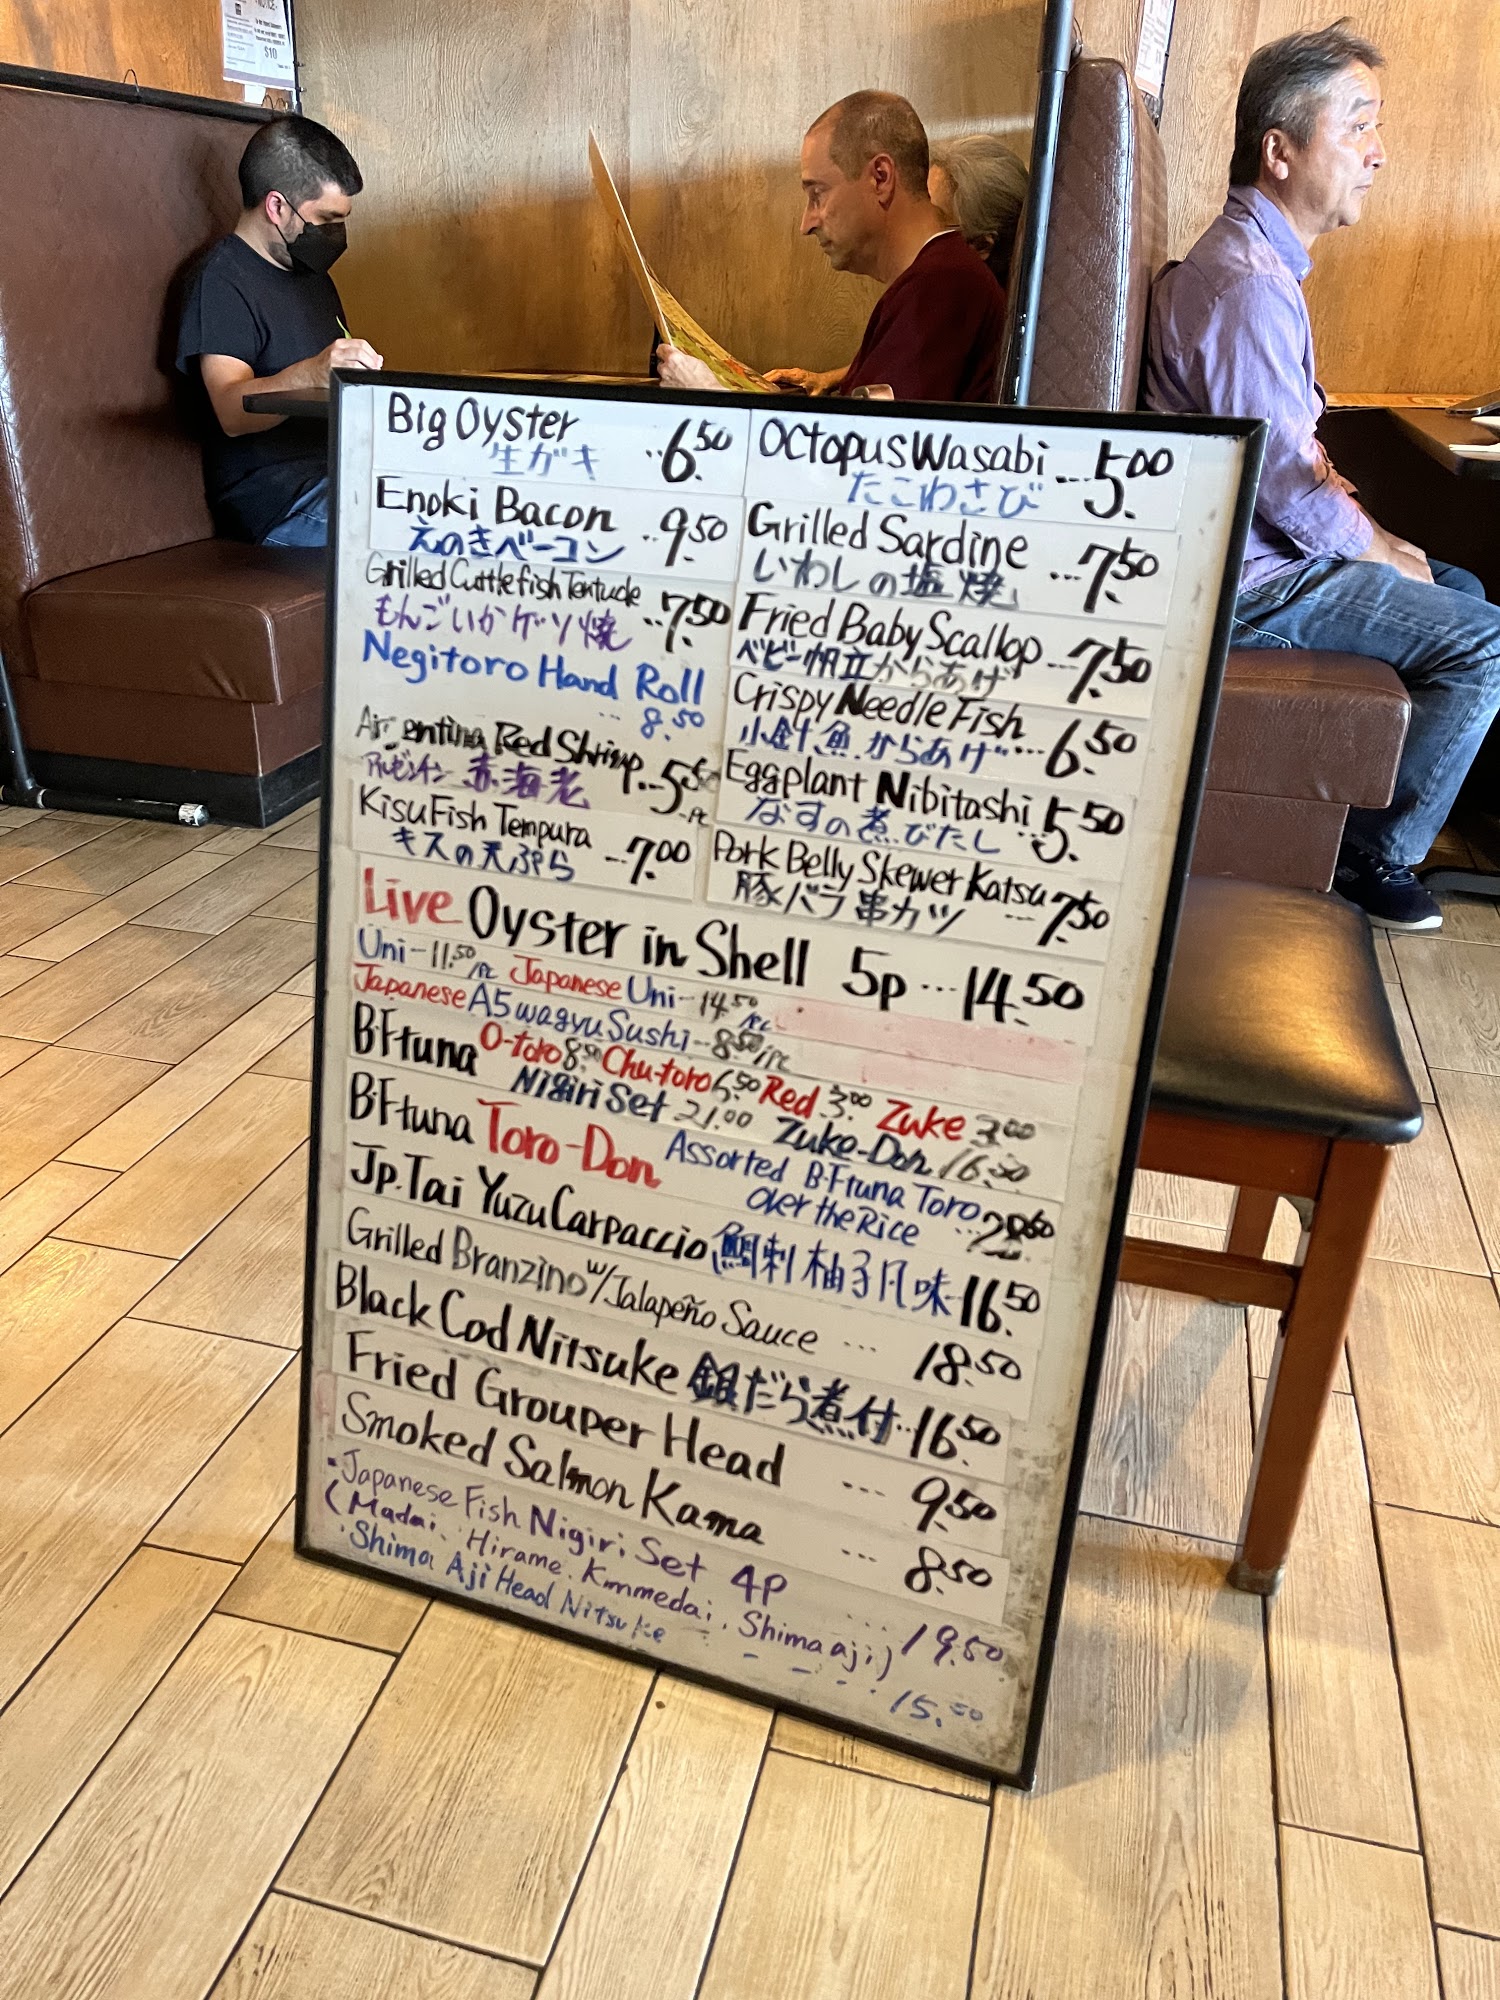 $10
Big Oyster ..6.50
生ガキ
Enoki Bacon ..9.50
えのきベーコン
Grilled Cuttlefish Tentucle ..7.50
もんごいかゲソ焼
Negitoro Hand Roll
... 8.50
Argentina Red Shrimp ...5.50
アルゼンチン 赤海老 -Pc
Kisu Fish Tempura ...7.00
キスの天ぷら
Octopus Wasabi ...5.00
たこわさび
Grilled Sardine ...7.50
いわしの塩焼
Fried Baby Scallop ...7.50
ベビー帆立からあげ
Crispy Needle Fish
小針魚からあげ ...6.50
Eggplant Nibitashi ...5.50
なすの煮びたし
Pork Belly Skewer Katsu ...7.50
豚バラ串カツ
Live Oyster in Shell 5p ...14.50
Uni-11.50/Pc Japanese Uni-14.50/Pc
Japanese A5 wagyu Sushi-8.50/Pc
B.F tuna O-toro 8.50 Chu-toro 6.50 Red 3.00 Zuke 3.00
Nigiri Set 21.00 Zuke-Don 16.50
B.F tuna Toro-Don Assorted B.F tuna Toro
over the Rice
Jp. Tai Yuzu Carpaccio 鯛刺柚子風味 16.50
Grilled Branzino w/ Jalapeño Sauce ... 18.50
Black Cod Nitsuke 銀だら煮付 ..16.50
Fried Grouper Head ... 9.50
Smoked Salmon Kama ... 8.50
・Japanese Fish Nigiri Set 4P ... 19.50
(Madai, Hirame, Kinmedai, Shima aji)
・Shima Aji Head Nitsuke ... 15.50